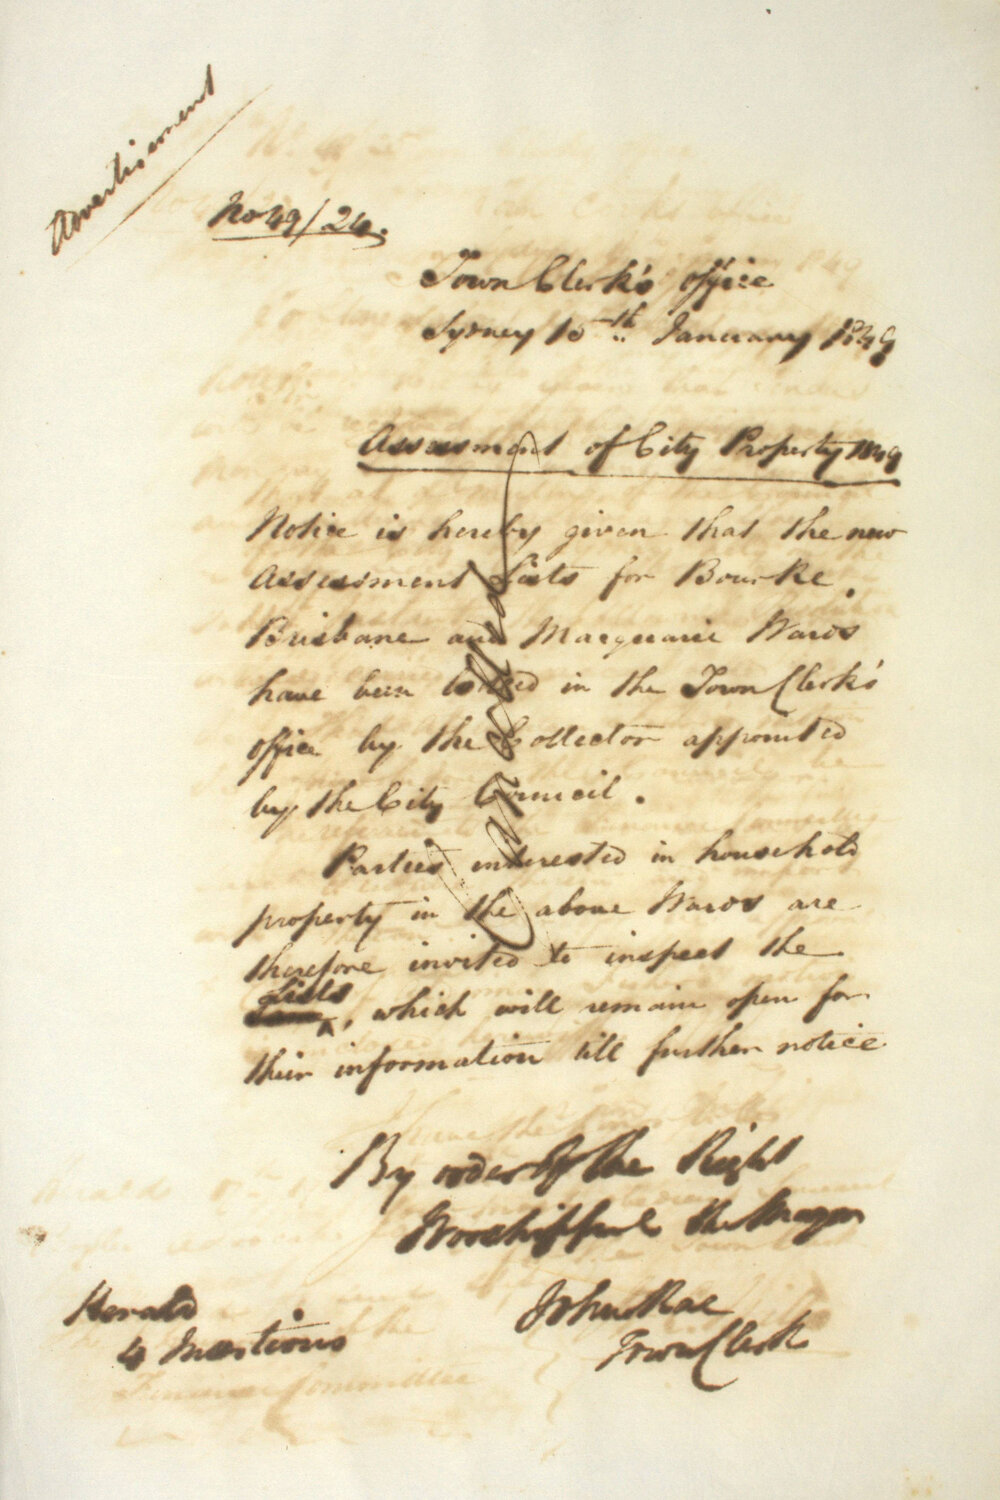 Advertisement
No 49/24.
Town Clerk's office
Sydney 15th January 1849
Assessment of City Property 1849
Notice is hereby given that the new
Assessment Lists for Bourke,
Brisbane and Macquarie Wards
have been lodged in the Town Clerk's
office by the Collector appointed
by the City Council.
Cancelled
Parties interested in household
property in the above Wards are
therefore invited to inspect the
Lists, which will remain open for
their information till further notice
By order of the Right
Worshipful the Mayor
John Rae
Town Clerk
Herald
4 Insertions